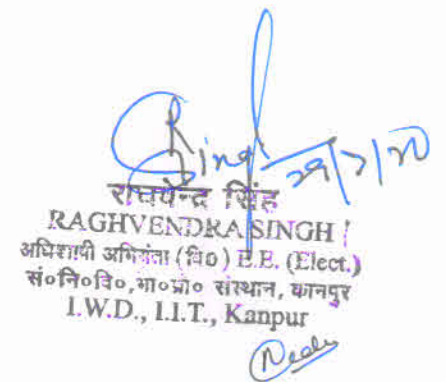 Singh
29/7/20
राघवेन्द्र सिंह
RAGHVENDRA SINGH
अधिशाषी अभियंता (वि०) E.E. (Elect.)
सं०नि०वि०,भा०प्रौ० संस्थान, कानपुर
I.W.D., I.I.T., Kanpur